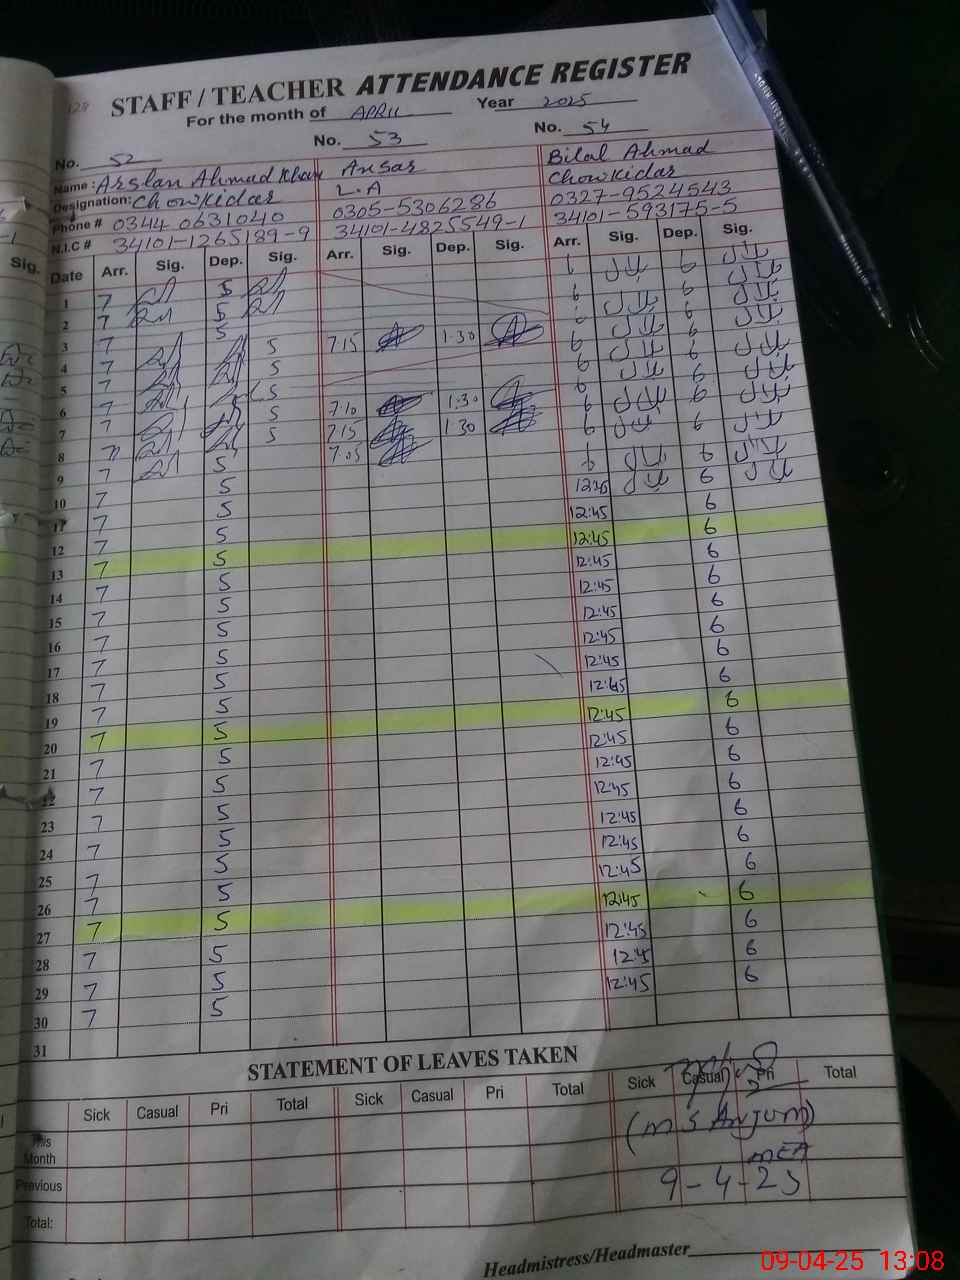 128
STAFF / TEACHER ATTENDANCE REGISTER
For the month of APRIL Year 2025
No. 52 No. 53 No. 54
Name : Arslan Ahmad Khan Ansar Bilal Ahmad
Designation: Chowkidar L.A Chowkidar
Phone # 0344 0631040 0305-5306286 0327-9524543
N.I.C # 34101-1265189-9 34101-4825549-1 34101-593175-5
Date Arr. Sig. Dep. Sig. Arr. Sig. Dep. Sig. Arr. Sig. Dep. Sig.
1 7 5 6 بلال 6 بلال
2 7 5 6 بلال 6 بلال
3 7 5 7:15 1:30 6 بلال 6 بلال
4 7 5 6 بلال 6 بلال
5 7 5 6 بلال 6 بلال
6 7 5 7:10 1:30 6 بلال 6 بلال
7 7 5 7:15 1:30 6 بلال 6 بلال
8 7 5 7:05 6 بلال 6 بلال
9 7 5 12:45 بلال 6 بلال
10 7 5 12:45 6
11 7 5 12:45 6
12 7 5 12:45 6
13 7 5 12:45 6
14 7 5 12:45 6
15 7 5 12:45 6
16 7 5 12:45 6
17 7 5 12:45 6
18 7 5 12:45 6
19 7 5 12:45 6
20 7 5 12:45 6
21 7 5 12:45 6
22 7 5 12:45 6
23 7 5 12:45 6
24 7 5 12:45 6
25 7 5 12:45 6
26 7 5 12:45 6
27 7 5 12:45 6
28 7 5 12:45 6
29 7 5 12:45 6
30 7 5
31
STATEMENT OF LEAVES TAKEN
Sick Casual Pri Total Sick Casual Pri Total Sick Casual Pri Total
This Month
(M S Anjum)
MEA
Previous
9-4-25
Total:
Headmistress/Headmaster
09-04-25 13:08